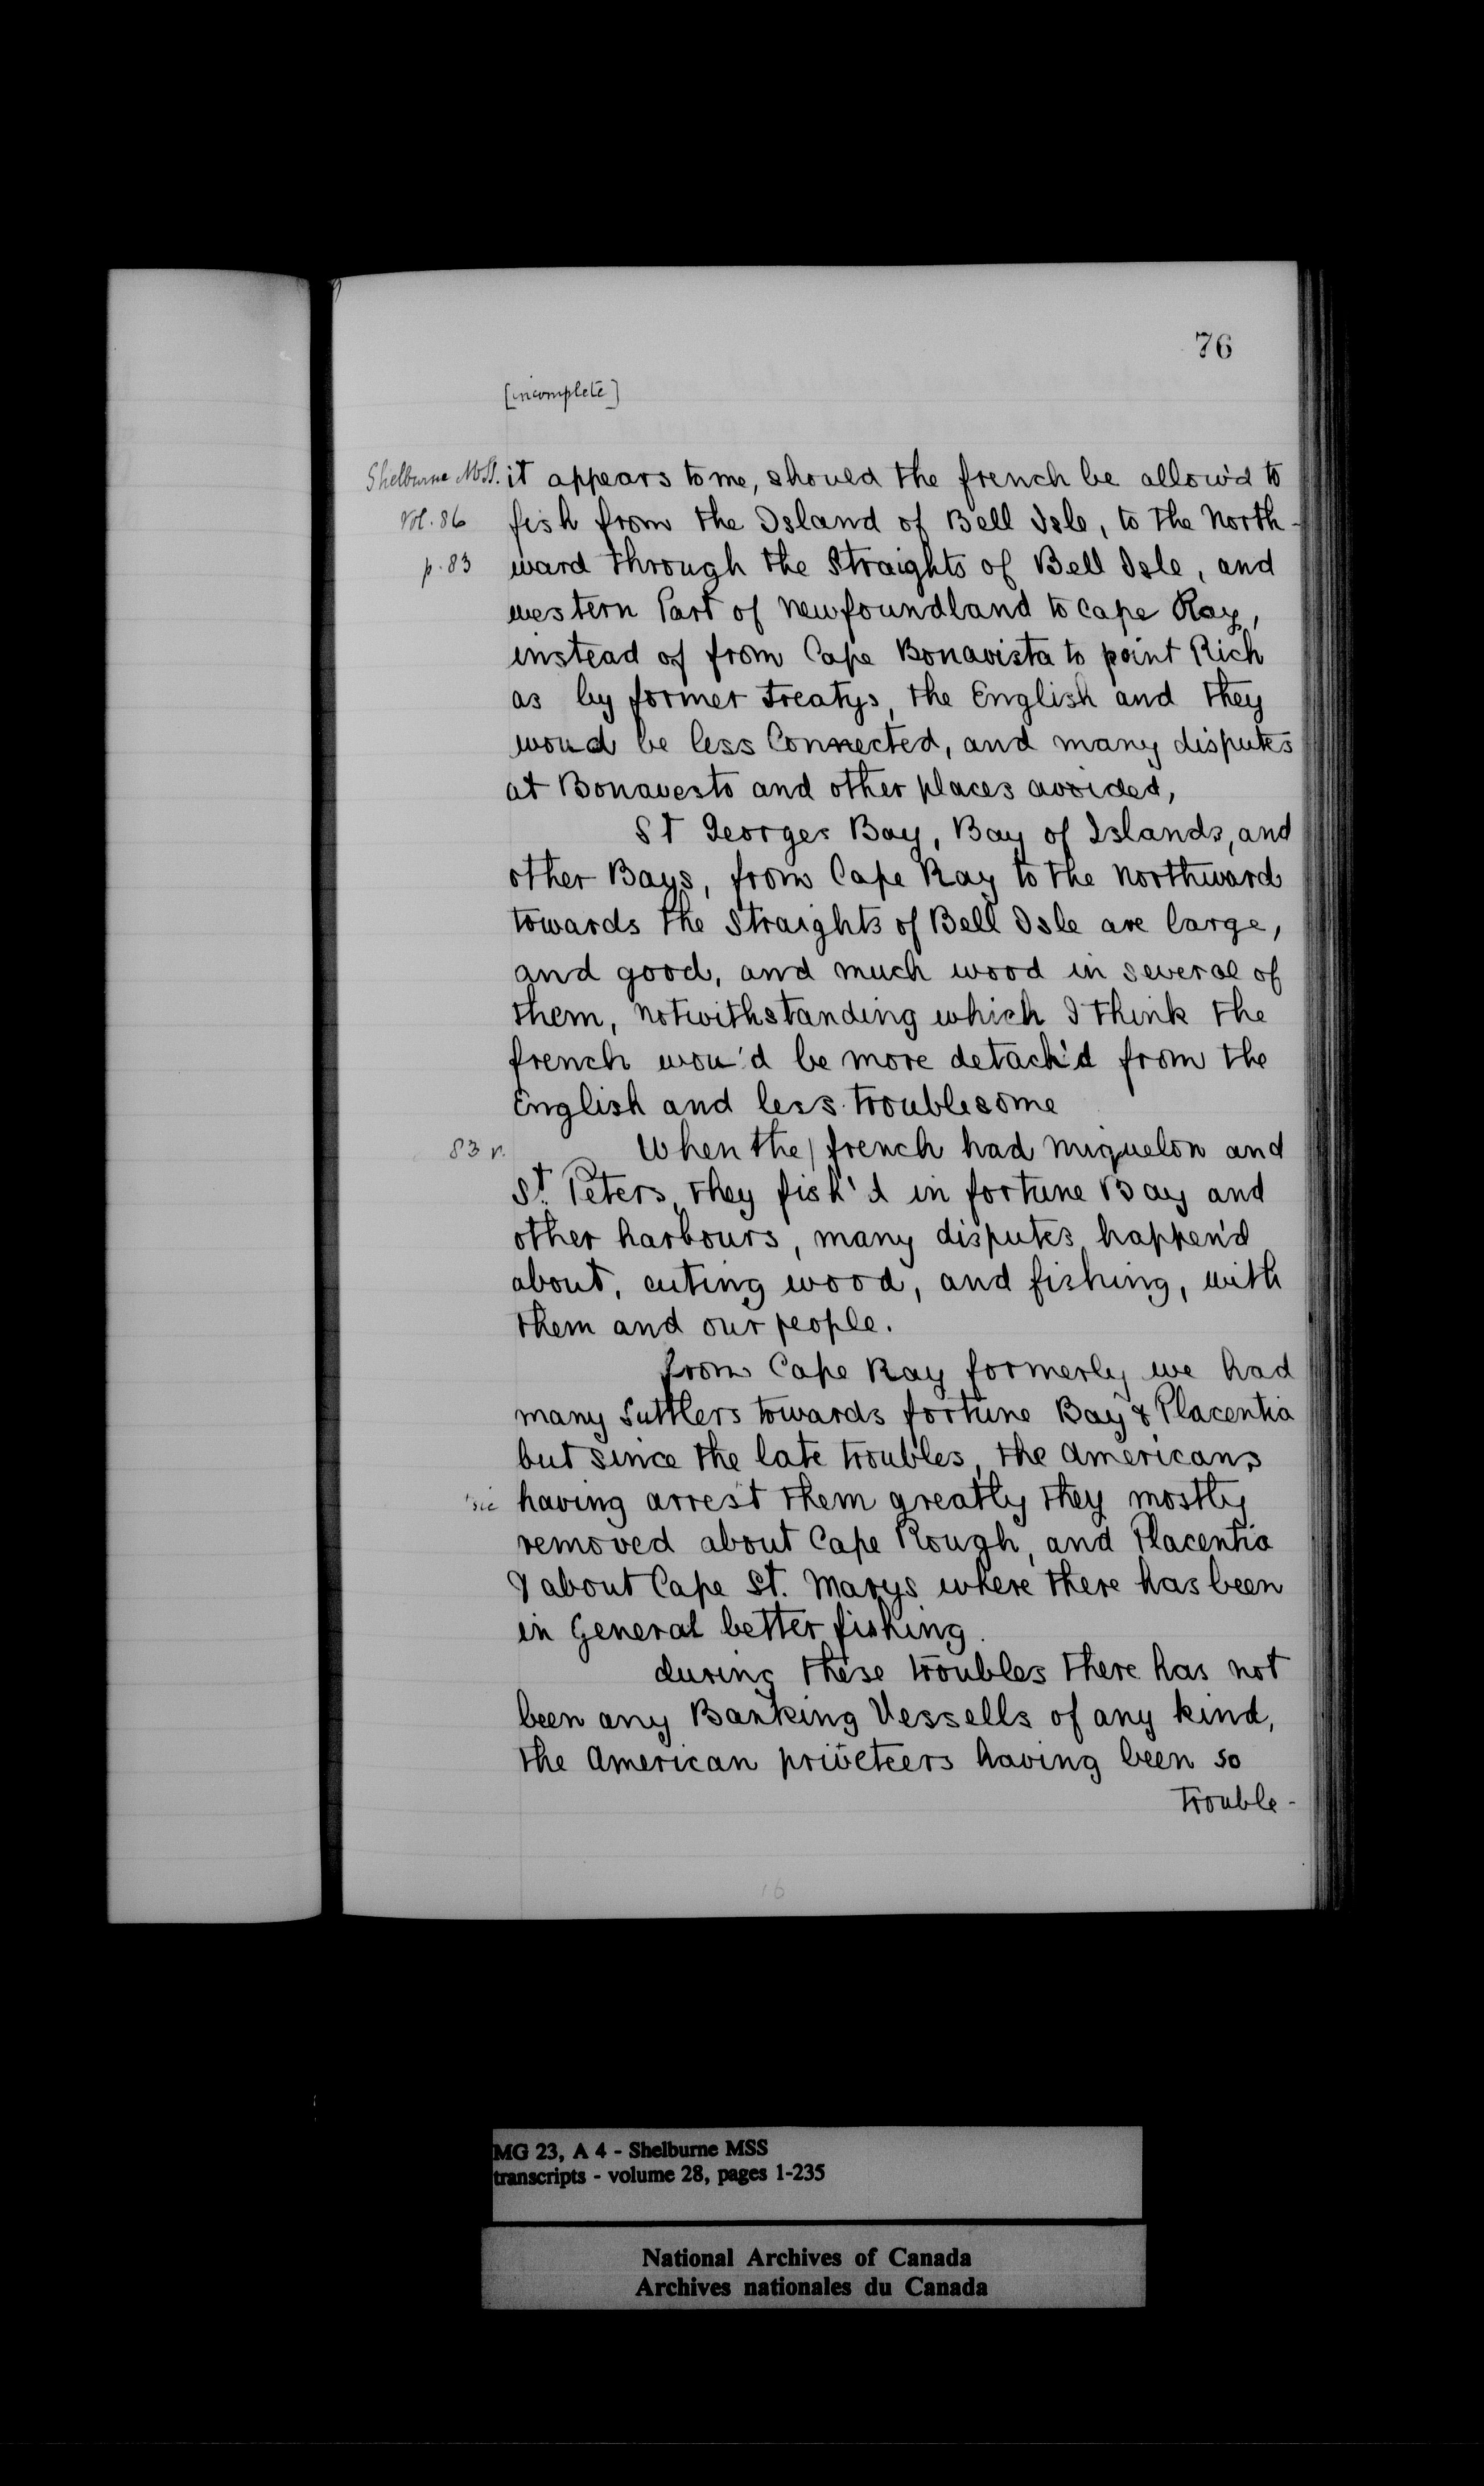 76
[incomplete]
Shelburne MSS. it appears to me, should the french be allow'd to
Vol. 86 fish from the Island of Bell Isle, to the North-
p. 83 ward through the Straights of Bell Isle, and
western Part of Newfoundland to Cape Ray,
instead of from Cape Bonavista to point Rich
as by former treatys, the English and they
woud be less Connected, and many disputes
at Bonavesto and other places avoided,
St Georges Bay, Bay of Islands, and
other Bays, from Cape Ray to the Northward
towards the Straights of Bell Isle are large,
and good, and much wood in several of
them, notwithstanding which I think the
french wou'd be more detach'd from the
English and less troublesome
83 v. When the / french had Miquelon and
St. Peters, they fish'd in fortune Bay and
other harbours, many disputes happen'd
about, cuting wood, and fishing, with
them and our people.
from Cape Ray formerly we had
many Suttlers towards fortune Bay & Placentia
but since the late troubles, the Americans
sic having arrest them greatly they mostly
removed about Cape Rough, and Placentia
& about Cape St. Marys where there has been
in General better fishing.
during these troubles there has not
been any Banking Vessells of any kind,
the American priveteers having been so
trouble-
16
MG 23, A 4 - Shelburne MSS
transcripts - volume 28, pages 1-235
National Archives of Canada
Archives nationales du Canada